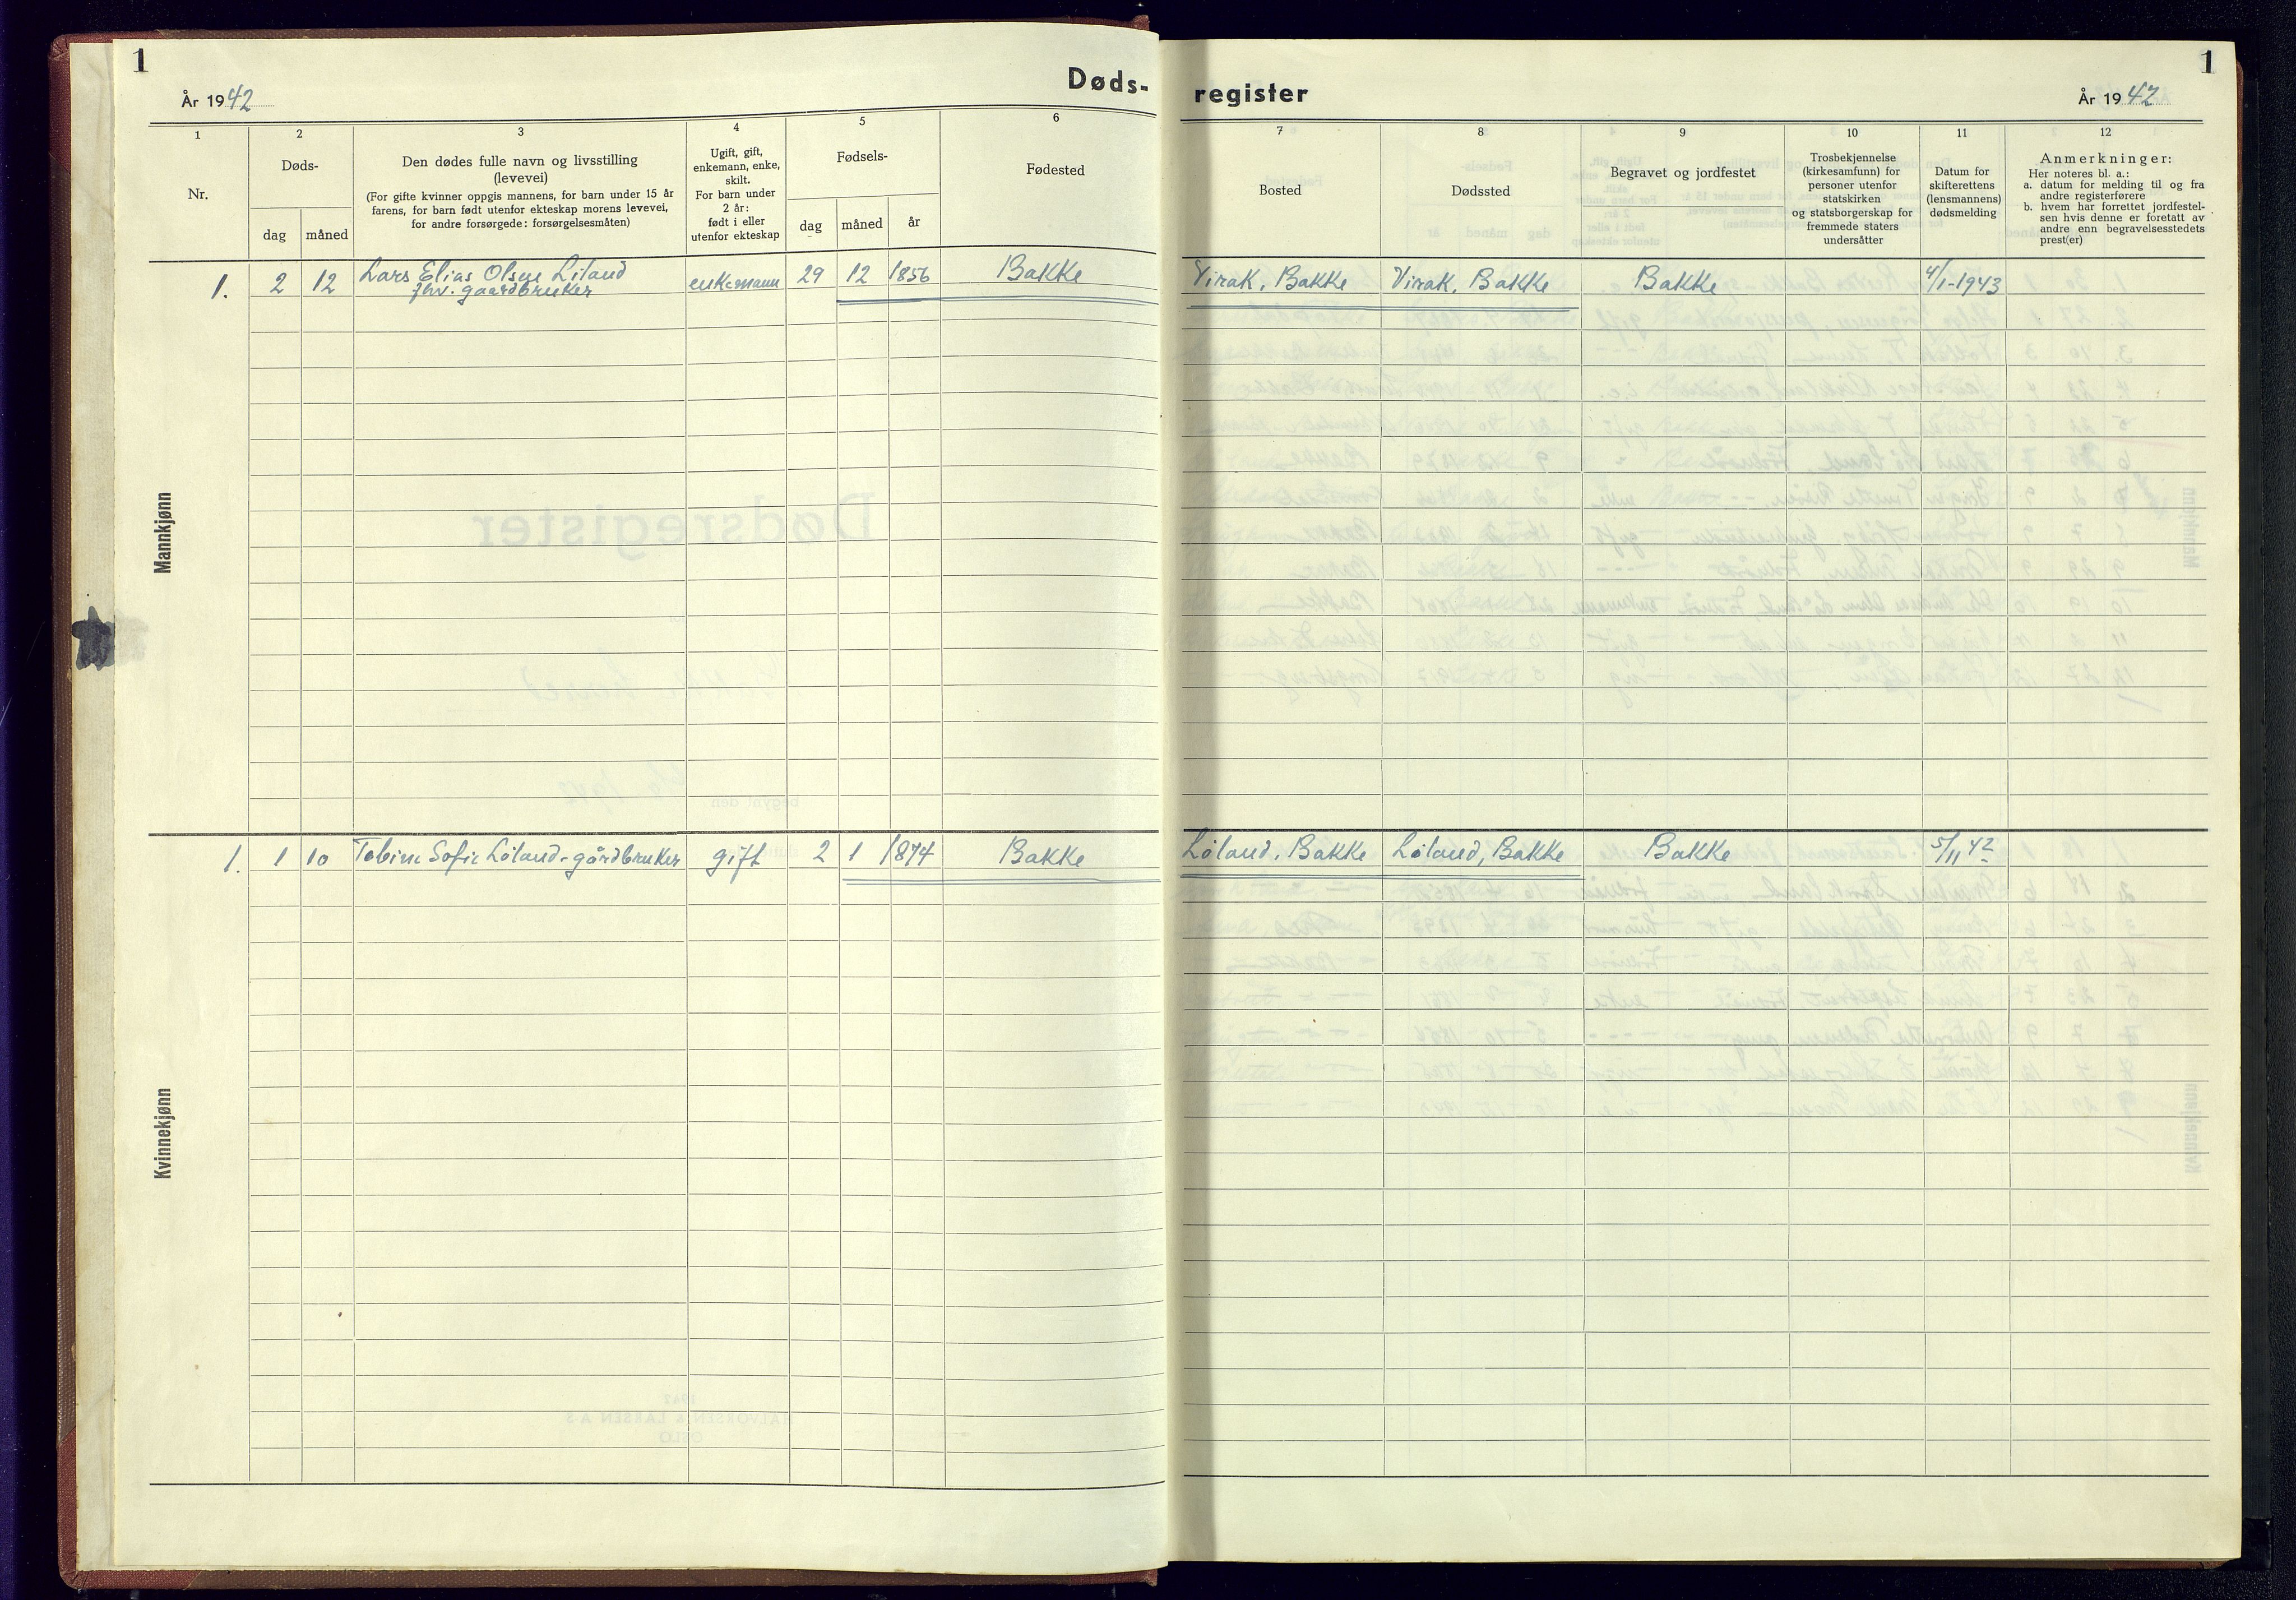 1
År 1942
Døds-
1
2
3
4
5
6
Nr.
Døds-
dag
måned
Den dødes fulle navn og livsstilling
(levevei)
(For gifte kvinner oppgis mannens, for barn under 15 år
farens, for barn født utenfor ekteskap morens levevei,
for andre forsørgede: forsørgelsesmåten)
Ugift, gift,
enkemann, enke,
skilt.
For barn under
2 år:
født i eller
utenfor ekteskap
Fødsels-
dag
måned
år
Fødested
Mannkjønn
1. 2 12 Lars Elias Olsen Liland enkemann 29 12 1856 Bakke
fhv. gaardbruker
Kvinnekjønn
1. 1 10 Tobine Sofie Løland - gårdbruker gift 2 1 1874 Bakke
register
År 1942
1
7
8
9
10
11
12
Bosted
Dødssted
Begravet og jordfestet
Trosbekjennelse
(kirkesamfunn) for
personer utenfor
statskirken
og statsborgerskap for
fremmede staters
undersåtter
Datum for
skifterettens
(lensmannens)
dødsmelding
Anmerkninger:
Her noteres bl. a.:
a. datum for melding til og fra
andre registerførere
b. hvem har forrettet jordfestel-
sen hvis denne er foretatt av
andre enn begravelsesstedets
prest(er)
Virak, Bakke Virak, Bakke Bakke 4/1-1943
Løland, Bakke Løland, Bakke Bakke 5/11 42